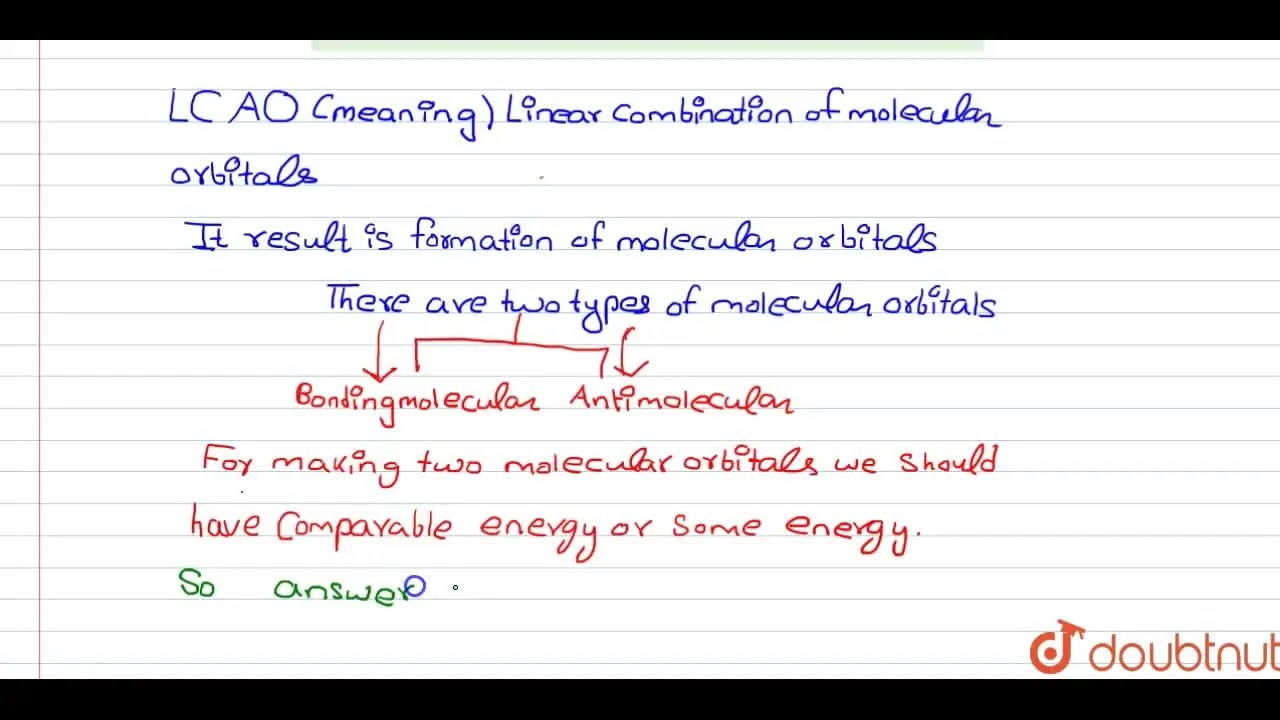 LCAO (meaning) Linear combination of molecular
orbitals
It result is formation of molecular orbitals
There are two types of molecular orbitals
Bonding molecular Antimolecular
For making two molecular orbitals we should
have Comparable energy or Some energy.
So answer
doubtnut